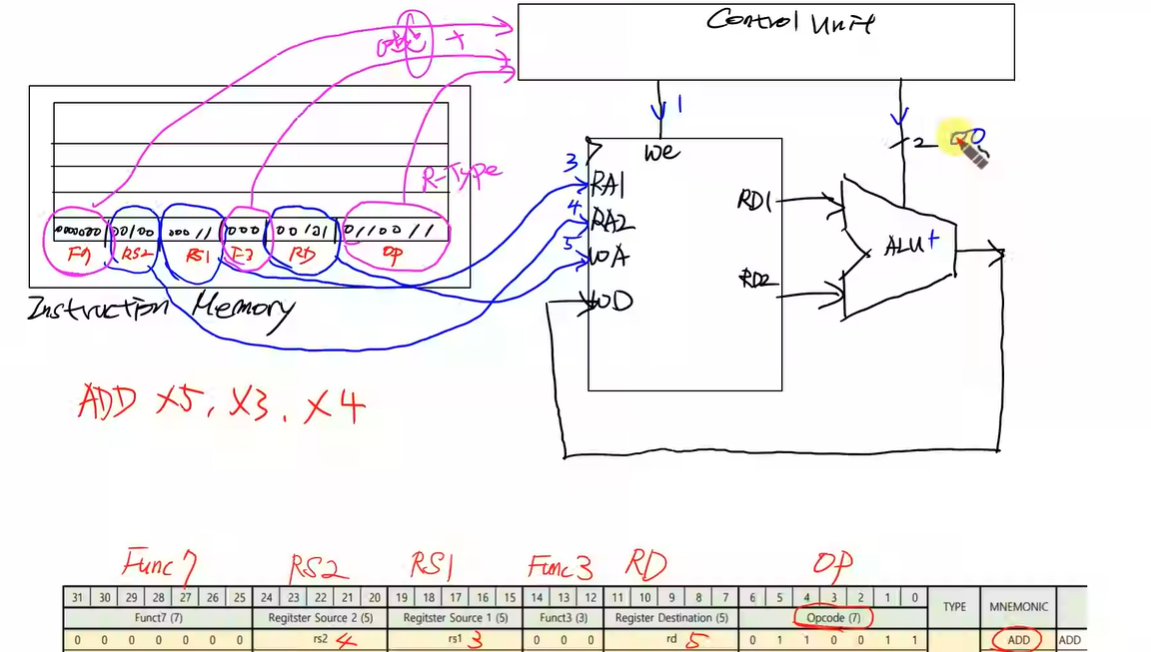 Control Unit
+
1
we
2
0
R-Type
3
RA1
4
RA2
5
WA
WD
RD1
RD2
ALU +
0000000 00100 00011 000 00101 0110011
F7 RS2 RS1 F3 RD OP
Instruction Memory
ADD X5, X3, X4
Func7 RS2 RS1 Func3 RD OP
31 30 29 28 27 26 25 24 23 22 21 20 19 18 17 16 15 14 13 12 11 10 9 8 7 6 5 4 3 2 1 0 TYPE MNEMONIC
Funct7 (7) Regitster Source 2 (5) Regitster Source 1 (5) Funct3 (3) Register Destination (5) Opcode (7)
0 0 0 0 0 0 0 rs2 4 rs1 3 0 0 0 rd 5 0 1 1 0 0 1 1 ADD ADD